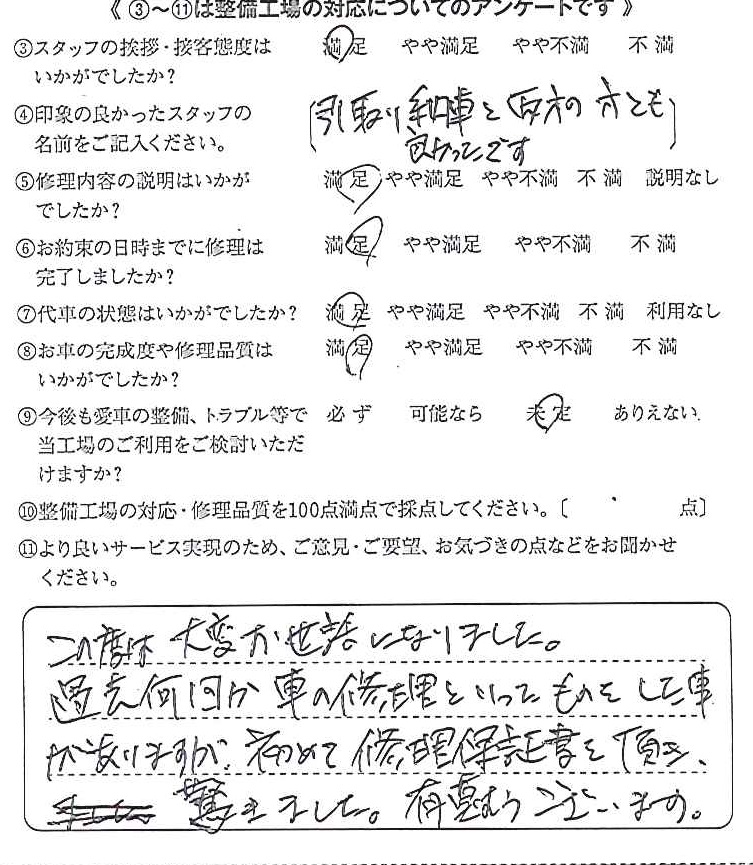 《 ③～⑪は整備工場の対応についてのアンケートです 》
③スタッフの挨拶・接客態度は 満足 やや満足 やや不満 不満
いかがでしたか?
④印象の良かったスタッフの 引取り 納車と 両方の 方とも
名前をご記入ください。 良かったです
⑤修理内容の説明はいかが 満足 やや満足 やや不満 不満 説明なし
でしたか?
⑥お約束の日時までに修理は 満足 やや満足 やや不満 不満
完了しましたか?
⑦代車の状態はいかがでしたか? 満足 やや満足 やや不満 不満 利用なし
⑧お車の完成度や修理品質は 満足 やや満足 やや不満 不満
いかがでしたか?
⑨今後も愛車の整備、トラブル等で 必ず 可能なら 未定 ありえない
当工場のご利用をご検討いただ
けますか?
⑩整備工場の対応・修理品質を100点満点で採点してください。〔 点〕
⑪より良いサービス実現のため、ご意見・ご要望、お気づきの点などをお聞かせ
ください。
この度は 大変お世話になりました。
過去何回か 車の修理といった ものをした事
がありますが、初めて 修理保証書を頂き、
驚きました。有難うございます。